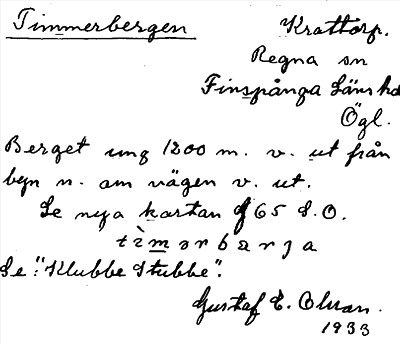 Timmerbergen Krattorp.
Regna sn
Finspånga Länshd
Ögl.
Berget ung 1200 m. v. ut från
byn n. om vägen v. ut.
Se nya kartan 65 S.O.
tìmərbærja
Se: "Klubbe Stubbe".
Gustaf E. Olsson.
1933